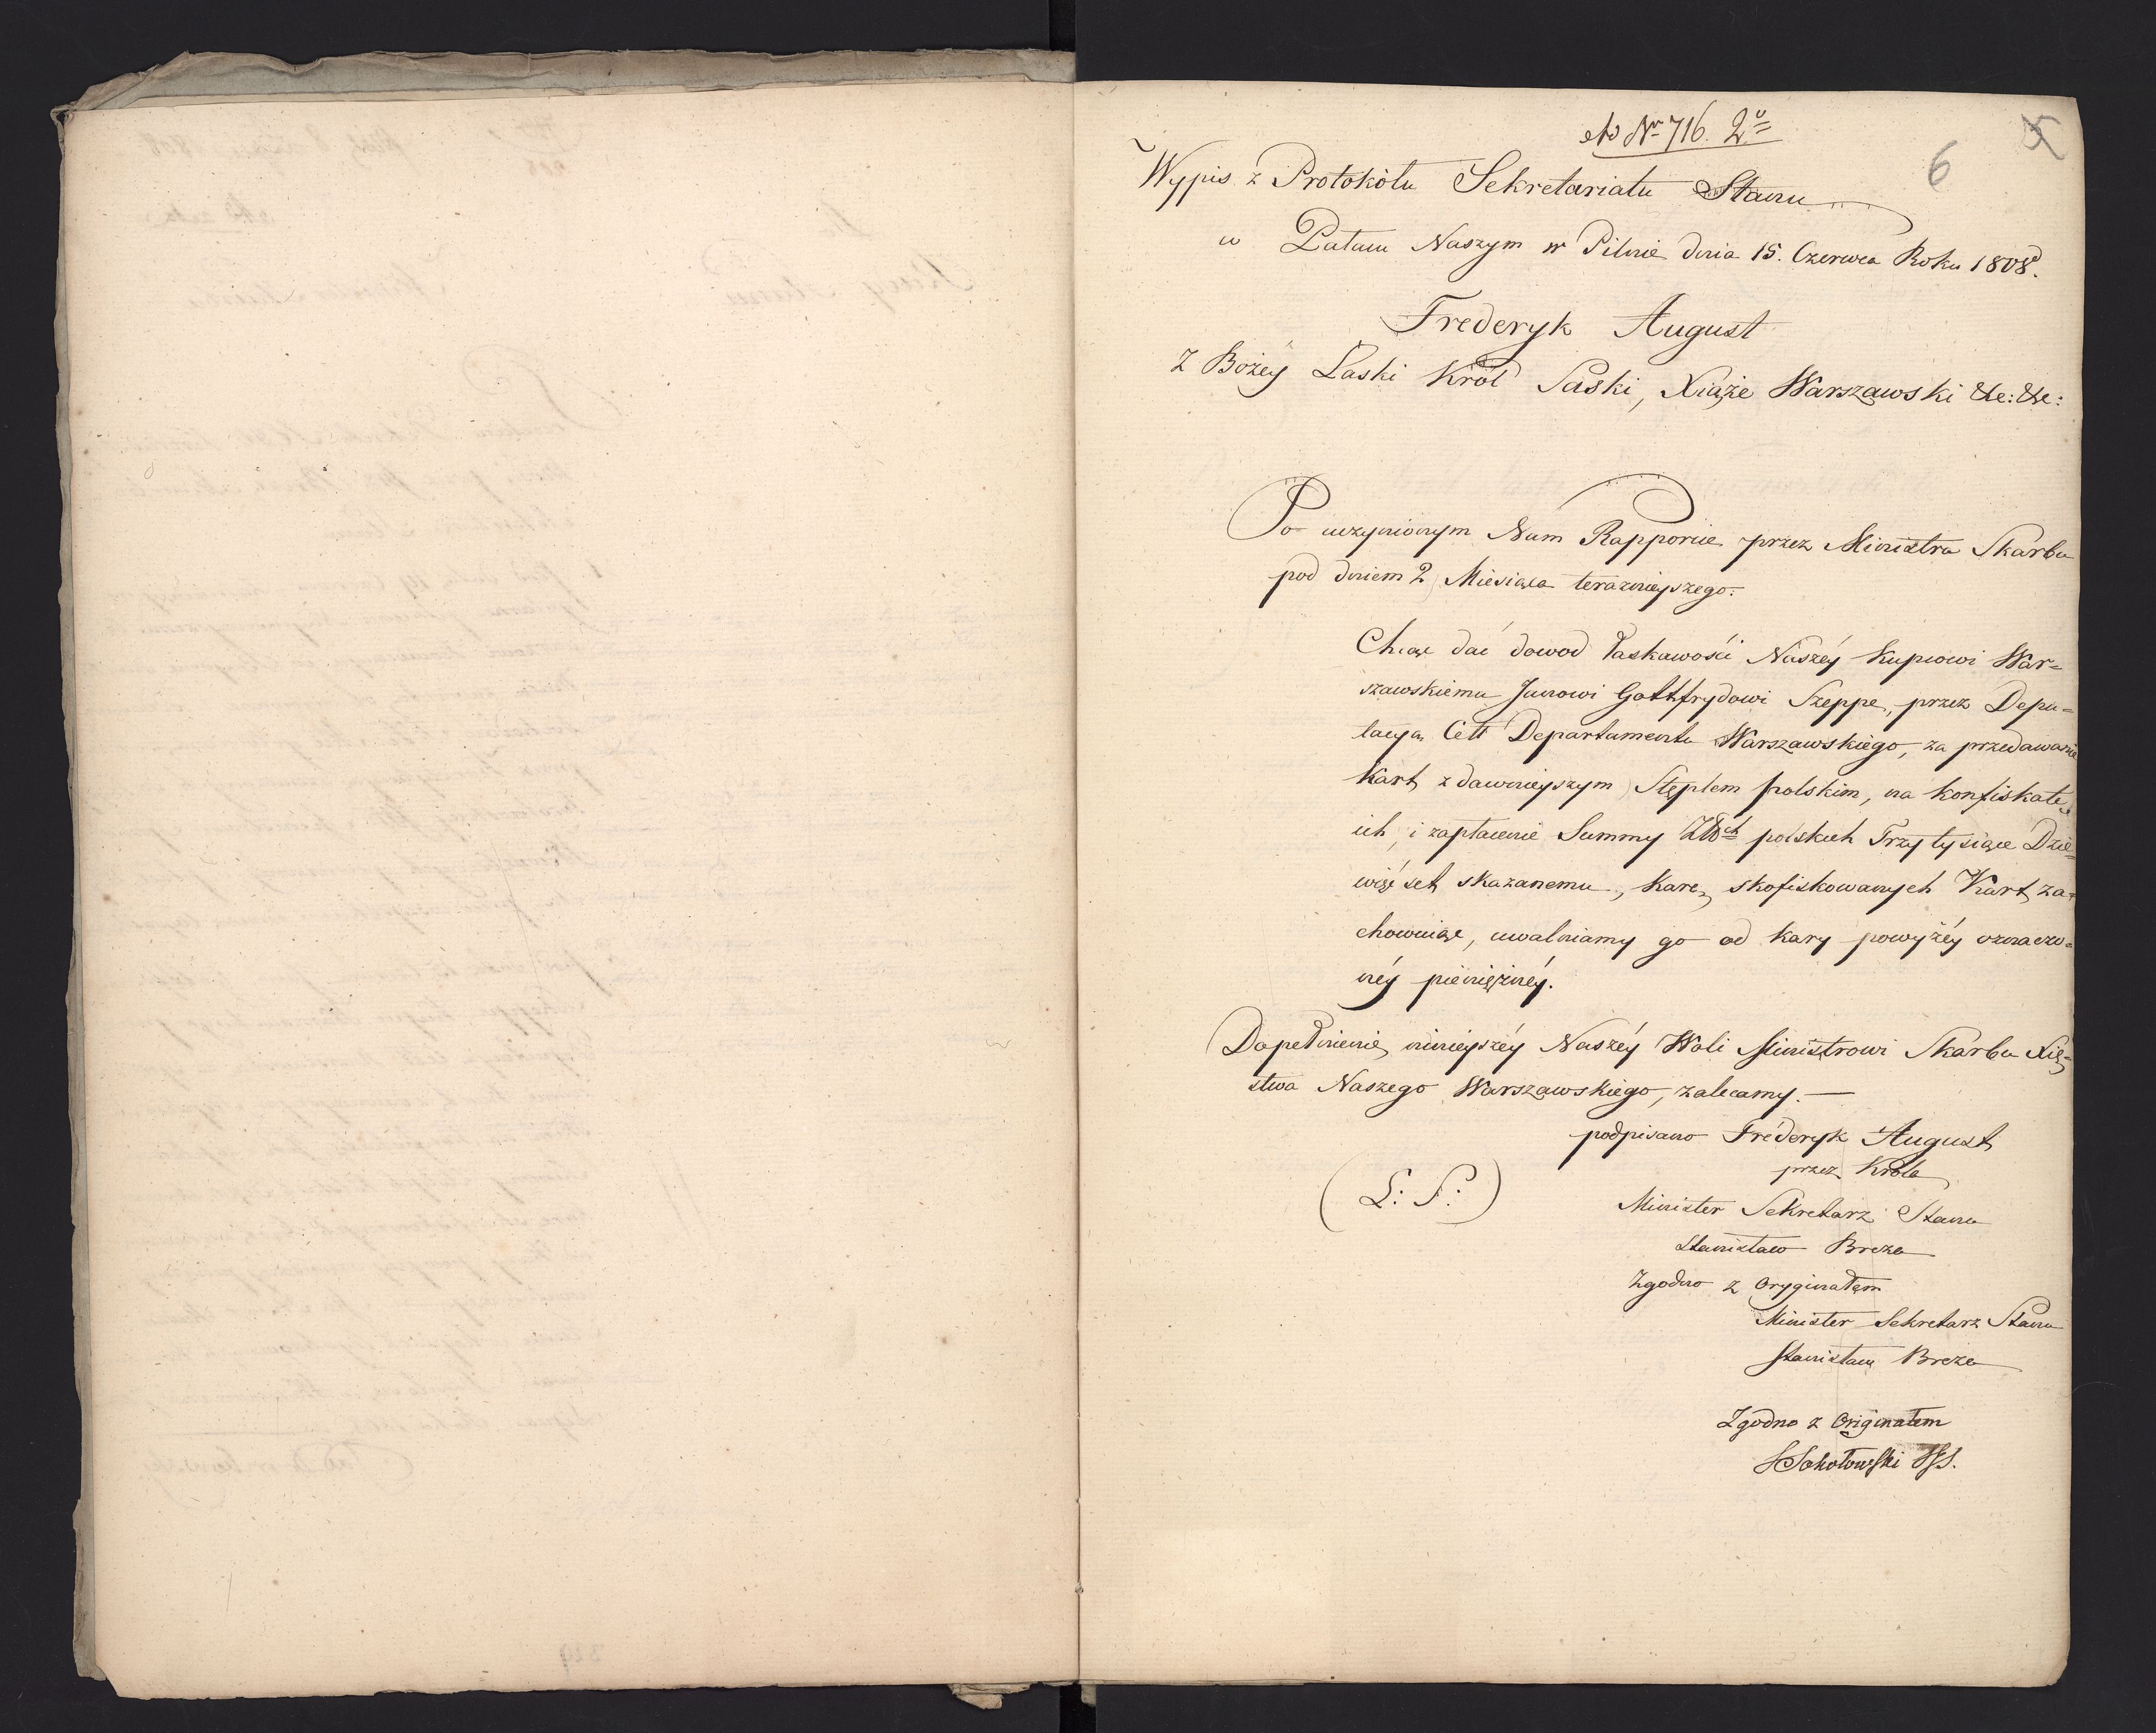 ad Nr 716. 2o
6
5
Wypis z Protokółu Sekretariatu Stanu
w Pałacu Naszym w Pilnie dnia 15. Czerwca Roku 1808.
Frederyk August
Z Bożéy Łaski Król Saski, Xiąże Warszawski &c: &c:
Po uczynionym Nam Rapporcie przez Ministra Skarbu
pod dniem 2 Miesiąca teraznieyszego:
Chcąc dać dowod łaskawości Naszéy Kupcowi War=
szawskiemu Janowi Gottfrydowi Szeppe, przez Depu=
tacyą Cełł Departamentu Warszawskiego, za przedawanie
Kart z dawnieyszym Stęplem polskim, na konfiskatę
ich, i zapłacenie Summy Złłch polskich Trzy tysiące Dzie=
więćset skazanemu, karę skofiskowanych Kart za=
chowuiąc, uwalniamy go od kary powyżéy oznaczo=
néy pieniężnéy.
Dopełnienie ninieyszéy Naszéy Woli Ministrowi Skarbu Xię=
stwa Naszego Warszawskiego, zalecamy. —
podpisano Fréderyk August
przez Króla
(L: S:)
Minister Sekretarz Stanu
Stanisław Breza
Zgodno z Oryginałem
Minister Sekretarz Stanu
Stanisław Breza
Zgodno z Originałem
Sokołowski